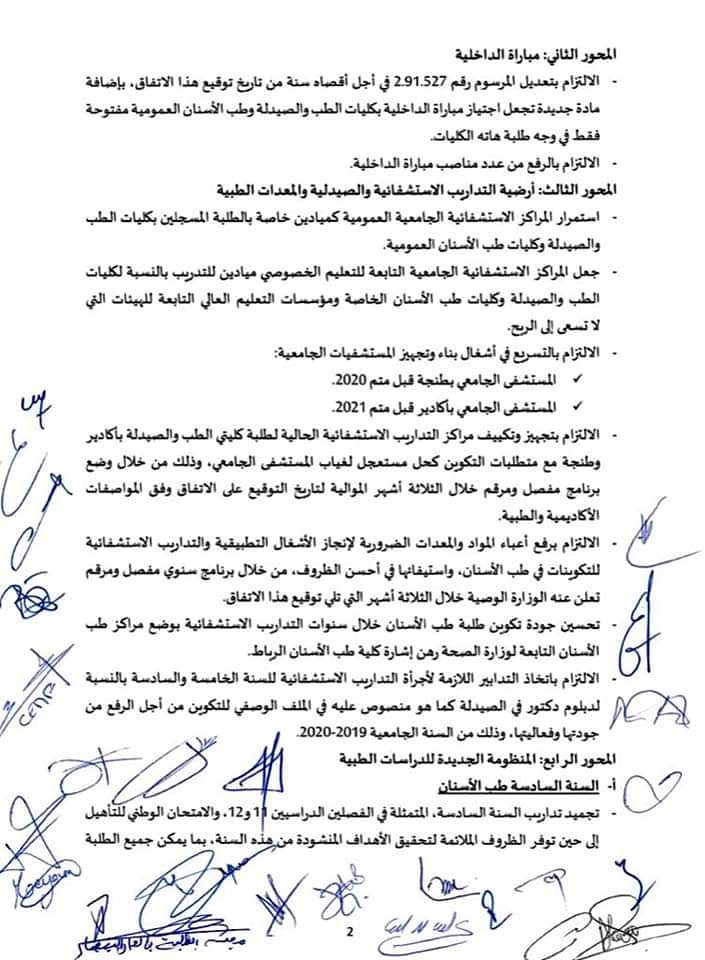 المحور الثاني: مباراة الداخلية
- الالتزام بتعديل المرسوم رقم 2.91.527 في أجل أقصاه سنة من تاريخ توقيع هذا الاتفاق، بإضافة
مادة جديدة تجعل اجتياز مباراة الداخلية بكليات الطب والصيدلة وطب الأسنان العمومية مفتوحة
فقط في وجه طلبة هاته الكليات.
- الالتزام بالرفع من عدد مناصب مباراة الداخلية.
المحور الثالث: أرضية التداريب الاستشفائية والصيدلية والمعدات الطبية
- استمرار المراكز الاستشفائية الجامعية العمومية كميادين خاصة بالطلبة المسجلين بكليات الطب
والصيدلة وكليات طب الأسنان العمومية.
- جعل المراكز الاستشفائية الجامعية التابعة للتعليم الخصوصي ميادين للتدريب بالنسبة لكليات
الطب والصيدلة وكليات طب الأسنان الخاصة ومؤسسات التعليم العالي التابعة للهيئات التي
لا تسعى إلى الربح.
- الالتزام بالتسريع في أشغال بناء وتجهيز المستشفيات الجامعية:
✓ المستشفى الجامعي بطنجة قبل متم 2020.
✓ المستشفى الجامعي بأكادير قبل متم 2021.
- الالتزام بتجهيز وتكييف مراكز التداريب الاستشفائية الحالية لطلبة كليتي الطب والصيدلة بأكادير
وطنجة مع متطلبات التكوين كحل مستعجل لغياب المستشفى الجامعي، وذلك من خلال وضع
برنامج مفصل ومرقم خلال الثلاثة أشهر الموالية لتاريخ التوقيع على الاتفاق وفق المواصفات
الأكاديمية والطبية.
- الالتزام برفع أعباء المواد والمعدات الضرورية لإنجاز الأشغال التطبيقية والتداريب الاستشفائية
للتكوينات في طب الأسنان، واستيفائها في أحسن الظروف، من خلال برنامج سنوي مفصل ومرقم
تعلن عنه الوزارة الوصية خلال الثلاثة أشهر التي تلي توقيع هذا الاتفاق.
- تحسين جودة تكوين طلبة طب الأسنان خلال سنوات التداريب الاستشفائية بوضع مراكز طب
الأسنان التابعة لوزارة الصحة رهن إشارة كلية طب الأسنان الرباط.
- الالتزام باتخاذ التدابير اللازمة لأجرأة التداريب الاستشفائية للسنة الخامسة والسادسة بالنسبة
لدبلوم دكتور في الصيدلة كما هو منصوص عليه في الملف الوصفي للتكوين من أجل الرفع من
جودتها وفعاليتها، وذلك من السنة الجامعية 2019-2020.
المحور الرابع: المنظومة الجديدة للدراسات الطبية
أ- السنة السادسة طب الأسنان
- تجميد تداريب السنة السادسة، المتمثلة في الفصلين الدراسيين 11 و12، والامتحان الوطني للتأهيل
إلى حين توفر الظروف الملائمة لتحقيق الأهداف المنشودة من هذه السنة، بما يمكن جميع الطلبة
2